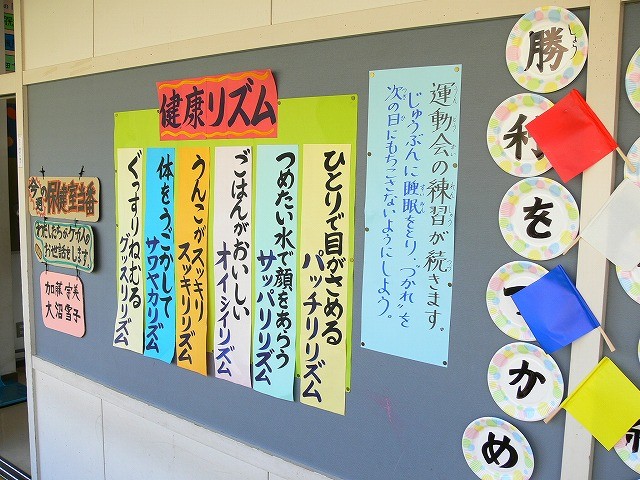 勝利をつかめ
しょう
運動会の練習が続きます。
じゅうぶんに睡眠をとり、"つかれ"を
次の日にもちこさないようにしよう。
健康リズム
ひとりで目がさめる
パッチリリズム
つめたい水で顔をあらう
サッパリリズム
ごはんがおいしい
オイシイリズム
うんこがスッキリ
スッキリリズム
体をうごかして
サワヤカリズム
ぐっすりねむる
グッスリリズム
今の週
保健室当番
わたしたちがケガ人の
お世話をします。
加藤
大沼雪子